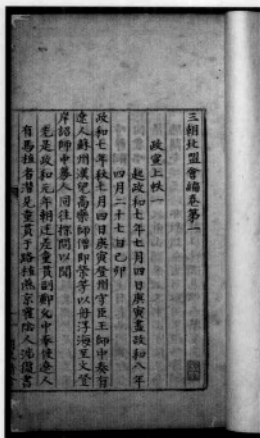 三朝北盟會編卷第一
政宣上帙一
起政和七年七月四日庚寅盡政和八年
四月二十七日己卯
政和七年秋七月四日庚寅登州守臣王師中奏有
遼人蘇州漢兒高藥師僧即榮等以舟浮海至文登
岸詔師中募人同往探問以聞
先是政和元年朝廷差童貫副鄭允中奉使遼人
有馬植者潛見童貫于路植燕京霍陰人涉獵書